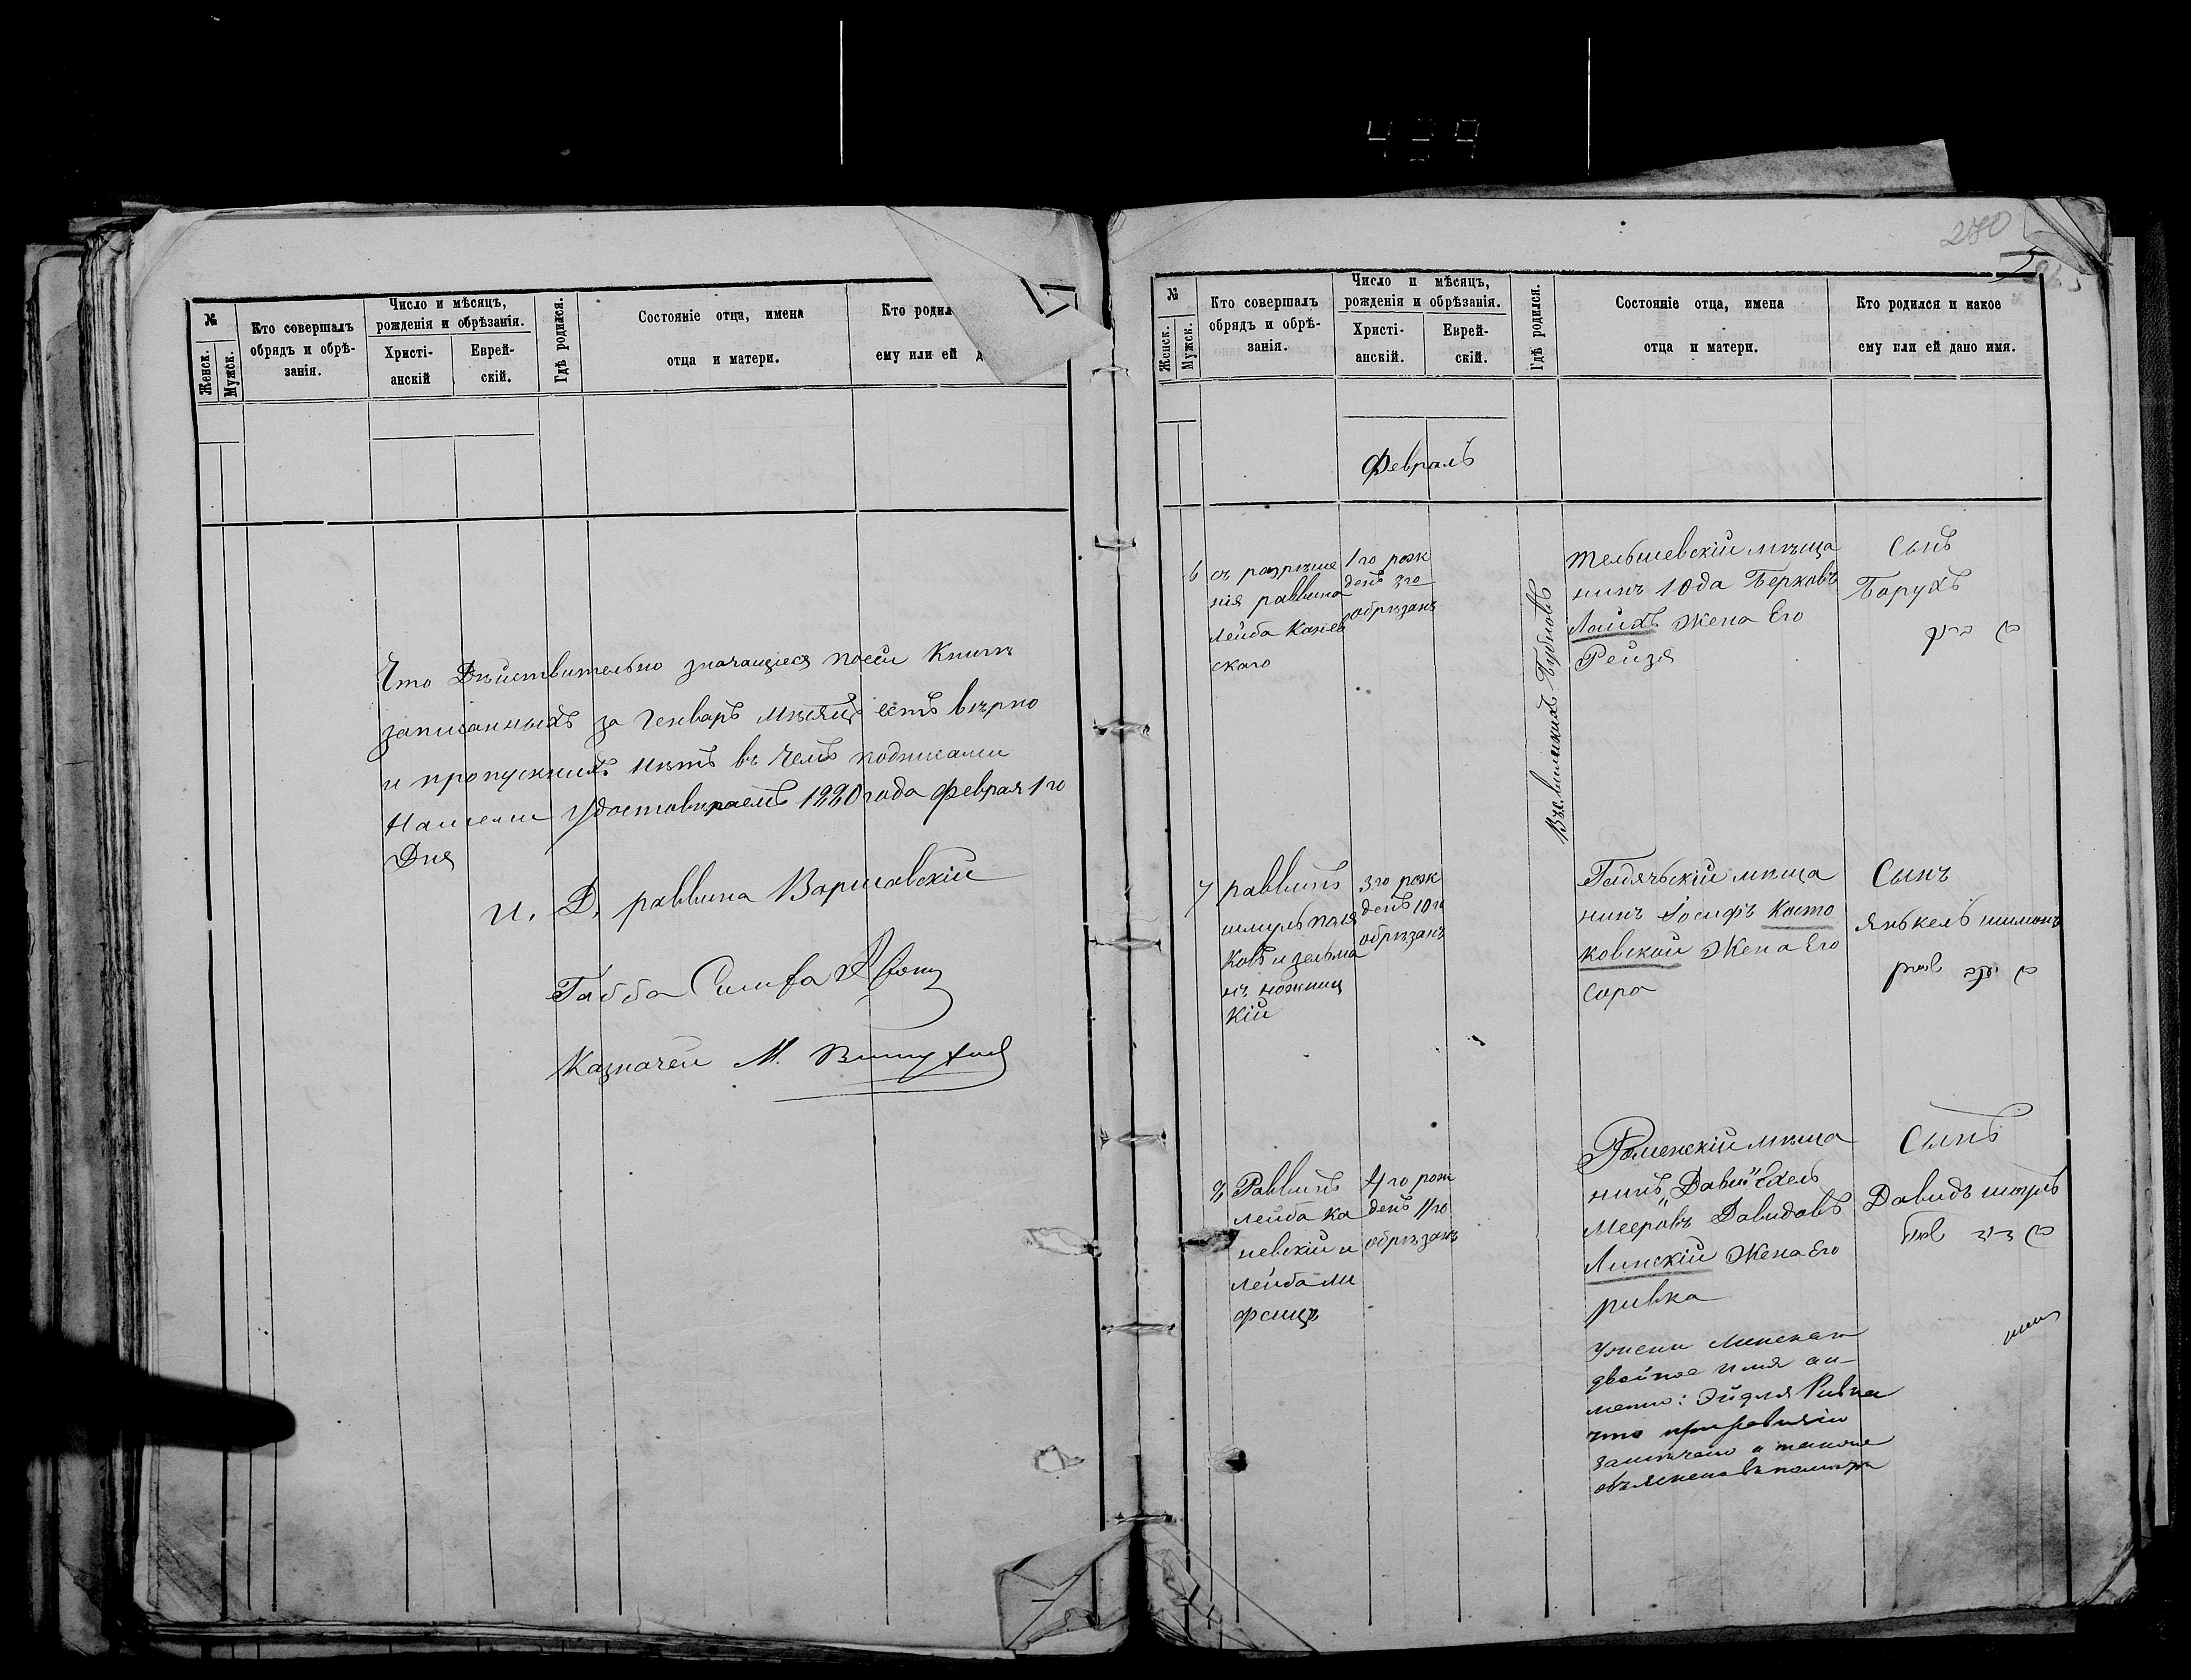 439
№
Женск.
Мужск.
Кто совершалъ
обрядъ и обрѣ-
занія.
Число и мѣсяцъ,
рожденія и обрѣзанія.
Христі-
анскій
Еврей-
скій.
Гдѣ родился.
Состояніе отца, имена
отца и матери.
Кто родил
ему или ей д
Что Дѣйствительно значащіеся посей Книги
записанныхъ за Генварь мѣсяцъ естъ вѣрно
и пропускныхъ нѣтъ въ чемъ подписами
Нашеми удостовѣраемъ 1880 года Февраля 1го
Дня
И. Д. раввина Варшавскій
Габба
Казначеи М.
280
№
Женск.
Мужск.
Кто совершалъ
обрядъ и обрѣ-
занія.
Число и мѣсяцъ,
рожденія и обрѣзанія.
Христі-
анскій.
Еврей-
скій.
Гдѣ родился.
Состояніе отца, имена
отца и матери.
Кто родился и какое
ему или ей дано имя.
Февраль
6
съ разрѣше
нія раввина
Лейба Канев
скаго
1го рож
денъ 3го
обрѣзанъ
Тельшевскій мѣща
нинъ Іода Берковъ
Лаихъ Жена Его
Рейзя
Сынъ
Борухъ
בן ברוך
7
раввинъ
шмуль Поля
ковъ и зельма
нъ ножниц
кій
3го рож
денъ 10го
обрѣзанъ
Гадячьскій мѣща
нинъ Іосифъ Косто
ковскои Жена Его
Сора
Сынъ
янькель шимонъ
בן יעקב שמעון
8
Раввинъ
Лейба Ка
невскій и
Лейба Ли
фшицъ
4го рож
денъ 11го
обрѣзанъ
Роменскій мѣща
нинъ „Давид" Ехель
Мееровъ Давидовъ
Линскій Жена Его
ривка
Сынъ
Давидъ шоулъ
בן דוד שאול
У жени Линскаго
двойное имя а и-
менно: Эйдля Ривка
что при ревизіи
замѣчено и также